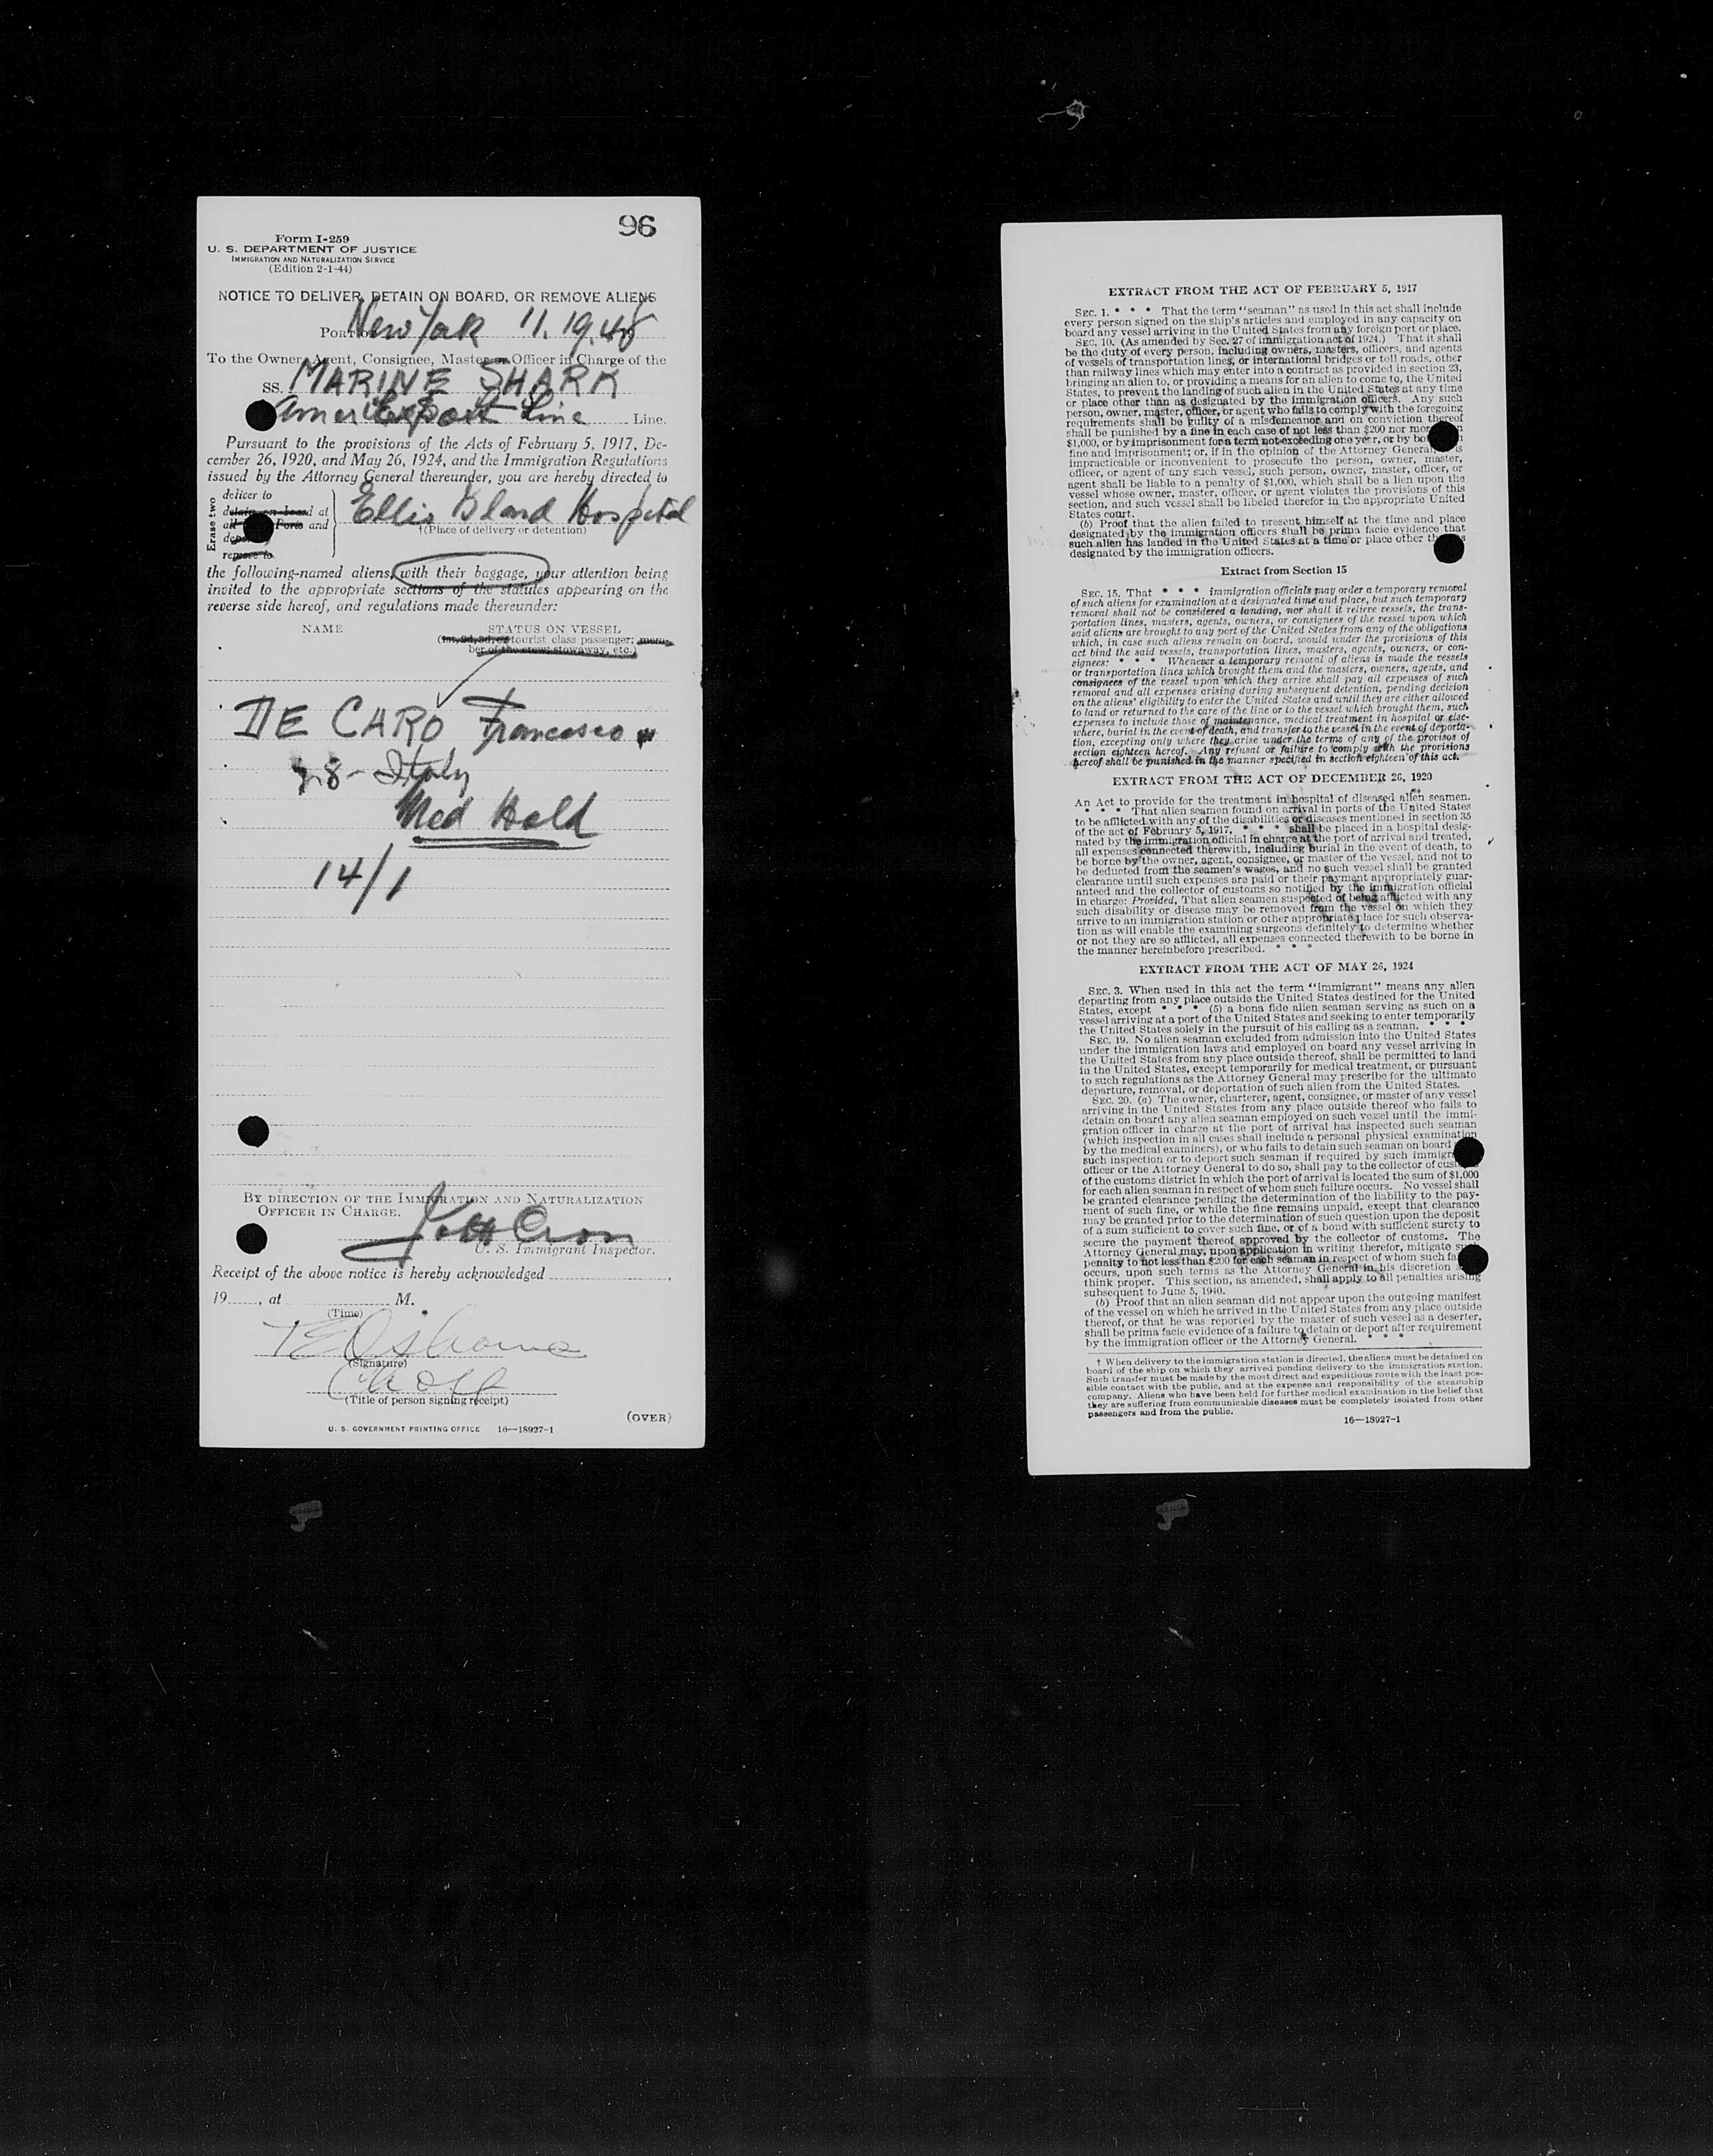 96
Form I-259
U. S. DEPARTMENT OF JUSTICE
IMMIGRATION AND NATURALIZATION SERVICE
(Edition 2-1-44)
NOTICE TO DELIVER, DETAIN ON BOARD, OR REMOVE ALIENS
PORT OF New York 11.19.48
To the Owner, Agent, Consignee, Master or Officer in Charge of the
SS. MARINE SHARK
Amer Export Line Line.
Pursuant to the provisions of the Acts of February 5, 1917, De-
cember 26, 1920, and May 26, 1924, and the Immigration Regulations
issued by the Attorney General thereunder, you are hereby directed to
Erase two
deliver to
detain on board at
all Ports and
remove to
Ellis Island Hospital
†(Place of delivery or detention)
the following-named aliens, with their baggage, your attention being
invited to the appropriate sections of the statutes appearing on the
reverse side hereof, and regulations made thereunder:
NAME STATUS ON VESSEL
(1st, 2d, 3d, or tourist class passenger; mem-
ber of the crew; stowaway, etc.)
DE CARO Francesco
28 - Italy
Med Hold
14/1
BY DIRECTION OF THE IMMIGRATION AND NATURALIZATION
OFFICER IN CHARGE.
U. S. Immigrant Inspector.
Receipt of the above notice is hereby acknowledged
19 , at M.
(Time)
T E Osborne
(Signature)
(Title of person signing receipt)
(OVER)
U. S. GOVERNMENT PRINTING OFFICE 16—18927-1
EXTRACT FROM THE ACT OF FEBRUARY 5, 1917
SEC. 1. * * * That the term "seaman" as used in this act shall include
every person signed on the ship's articles and employed in any capacity on
board any vessel arriving in the United States from any foreign port or place.
SEC. 10. (As amended by Sec. 27 of immigration act of 1924.) That it shall
be the duty of every person, including owners, masters, officers, and agents
of vessels of transportation lines, or international bridges or toll roads, other
than railway lines which may enter into a contract as provided in section 23,
bringing an alien to, or providing a means for an alien to come to, the United
States, to prevent the landing of such alien in the United States at any time
or place other than as designated by the immigration officers. Any such
person, owner, master, officer, or agent who fails to comply with the foregoing
requirements shall be guilty of a misdemeanor and on conviction thereof
shall be punished by a fine in each case of not less than $200 nor mor
$1,000, or by imprisonment for a term not exceeding one year, or by bo
fine and imprisonment; or, if in the opinion of the Attorney General, is
impracticable or inconvenient to prosecute the person, owner, master,
officer, or agent of any such vessel, such person, owner, master, officer, or
agent shall be liable to a penalty of $1,000, which shall be a lien upon the
vessel whose owner, master, officer, or agent violates the provisions of this
section, and such vessel shall be libeled therefor in the appropriate United
States court.
(b) Proof that the alien failed to present himself at the time and place
designated by the immigration officers shall be prima facie evidence that
such alien has landed in the United States at a time or place other th
designated by the immigration officers.
Extract from Section 15
SEC. 15. That * * * immigration officials may order a temporary removal
of such aliens for examination at a designated time and place, but such temporary
removal shall not be considered a landing, nor shall it relieve vessels, the trans-
portation lines, masters, agents, owners, or consignees of the vessel upon which
said aliens are brought to any port of the United States from any of the obligations
which, in case such aliens remain on board, would under the provisions of this
act bind the said vessels, transportation lines, masters, agents, owners, or con-
signees: * * * Whenever a temporary removal of aliens is made the vessels
or transportation lines which brought them and the masters, owners, agents, and
consignees of the vessel upon which they arrive shall pay all expenses of such
removal and all expenses arising during subsequent detention, pending decision
on the aliens' eligibility to enter the United States and until they are either allowed
to land or returned to the care of the line or to the vessel which brought them, such
expenses to include those of maintenance, medical treatment in hospital or else-
where, burial in the event of death, and transfer to the vessel in the event of deporta-
tion, excepting only where they arise under the terms of any of the provisos of
section eighteen hereof. Any refusal or failure to comply with the provisions
hereof shall be punished in the manner specified in section eighteen of this act.
EXTRACT FROM THE ACT OF DECEMBER 26, 1920
An Act to provide for the treatment in hospital of diseased alien seamen.
* * * That alien seamen found on arrival in ports of the United States
to be afflicted with any of the disabilities or diseases mentioned in section 35
of the act of February 5, 1917, * * * shall be placed in a hospital desig-
nated by the immigration official in charge at the port of arrival and treated,
all expenses connected therewith, including burial in the event of death, to
be borne by the owner, agent, consignee, or master of the vessel, and not to
be deducted from the seamen's wages, and no such vessel shall be granted
clearance until such expenses are paid or their payment appropriately guar-
anteed and the collector of customs so notified by the immigration official
in charge: Provided, That alien seamen suspected of being afflicted with any
such disability or disease may be removed from the vessel on which they
arrive to an immigration station or other appropriate place for such observa-
tion as will enable the examining surgeons definitely to determine whether
or not they are so afflicted, all expenses connected therewith to be borne in
the manner hereinbefore prescribed. * * *
EXTRACT FROM THE ACT OF MAY 26, 1924
SEC. 3. When used in this act the term "immigrant" means any alien
departing from any place outside the United States destined for the United
States, except * * * (5) a bona fide alien seaman serving as such on a
vessel arriving at a port of the United States and seeking to enter temporarily
the United States solely in the pursuit of his calling as a seaman. * * *
SEC. 19. No alien seaman excluded from admission into the United States
under the immigration laws and employed on board any vessel arriving in
the United States from any place outside thereof, shall be permitted to land
in the United States, except temporarily for medical treatment, or pursuant
to such regulations as the Attorney General may prescribe for the ultimate
departure, removal, or deportation of such alien from the United States.
SEC. 20. (a) The owner, charterer, agent, consignee, or master of any vessel
arriving in the United States from any place outside thereof who fails to
detain on board any alien seaman employed on such vessel until the immi-
gration officer in charge at the port of arrival has inspected such seaman
(which inspection in all cases shall include a personal physical examination
by the medical examiners), or who fails to detain such seaman on board
such inspection or to deport such seaman if required by such immigra
officer or the Attorney General to do so, shall pay to the collector of cus
of the customs district in which the port of arrival is located the sum of $1,000
for each alien seaman in respect of whom such failure occurs. No vessel shall
be granted clearance pending the determination of the liability to the pay-
ment of such fine, or while the fine remains unpaid, except that clearance
may be granted prior to the determination of such question upon the deposit
of a sum sufficient to cover such fine, or of a bond with sufficient surety to
secure the payment thereof approved by the collector of customs. The
Attorney General may, upon application in writing therefor, mitigate s
penalty to not less than $200 for each seaman in respect of whom such fa
occurs, upon such terms as the Attorney General in his discretion
think proper. This section, as amended, shall apply to all penalties arising
subsequent to June 5, 1940.
(b) Proof that an alien seaman did not appear upon the outgoing manifest
of the vessel on which he arrived in the United States from any place outside
thereof, or that he was reported by the master of such vessel as a deserter,
shall be prima facie evidence of a failure to detain or deport after requirement
by the immigration officer or the Attorney General. * * *
† When delivery to the immigration station is directed, the aliens must be detained on
board of the ship on which they arrived pending delivery to the immigration station.
Such transfer must be made by the most direct and expeditious route with the least pos-
sible contact with the public, and at the expense and responsibility of the steamship
company. Aliens who have been held for further medical examination in the belief that
they are suffering from communicable diseases must be completely isolated from other
passengers and from the public.
16—18927-1